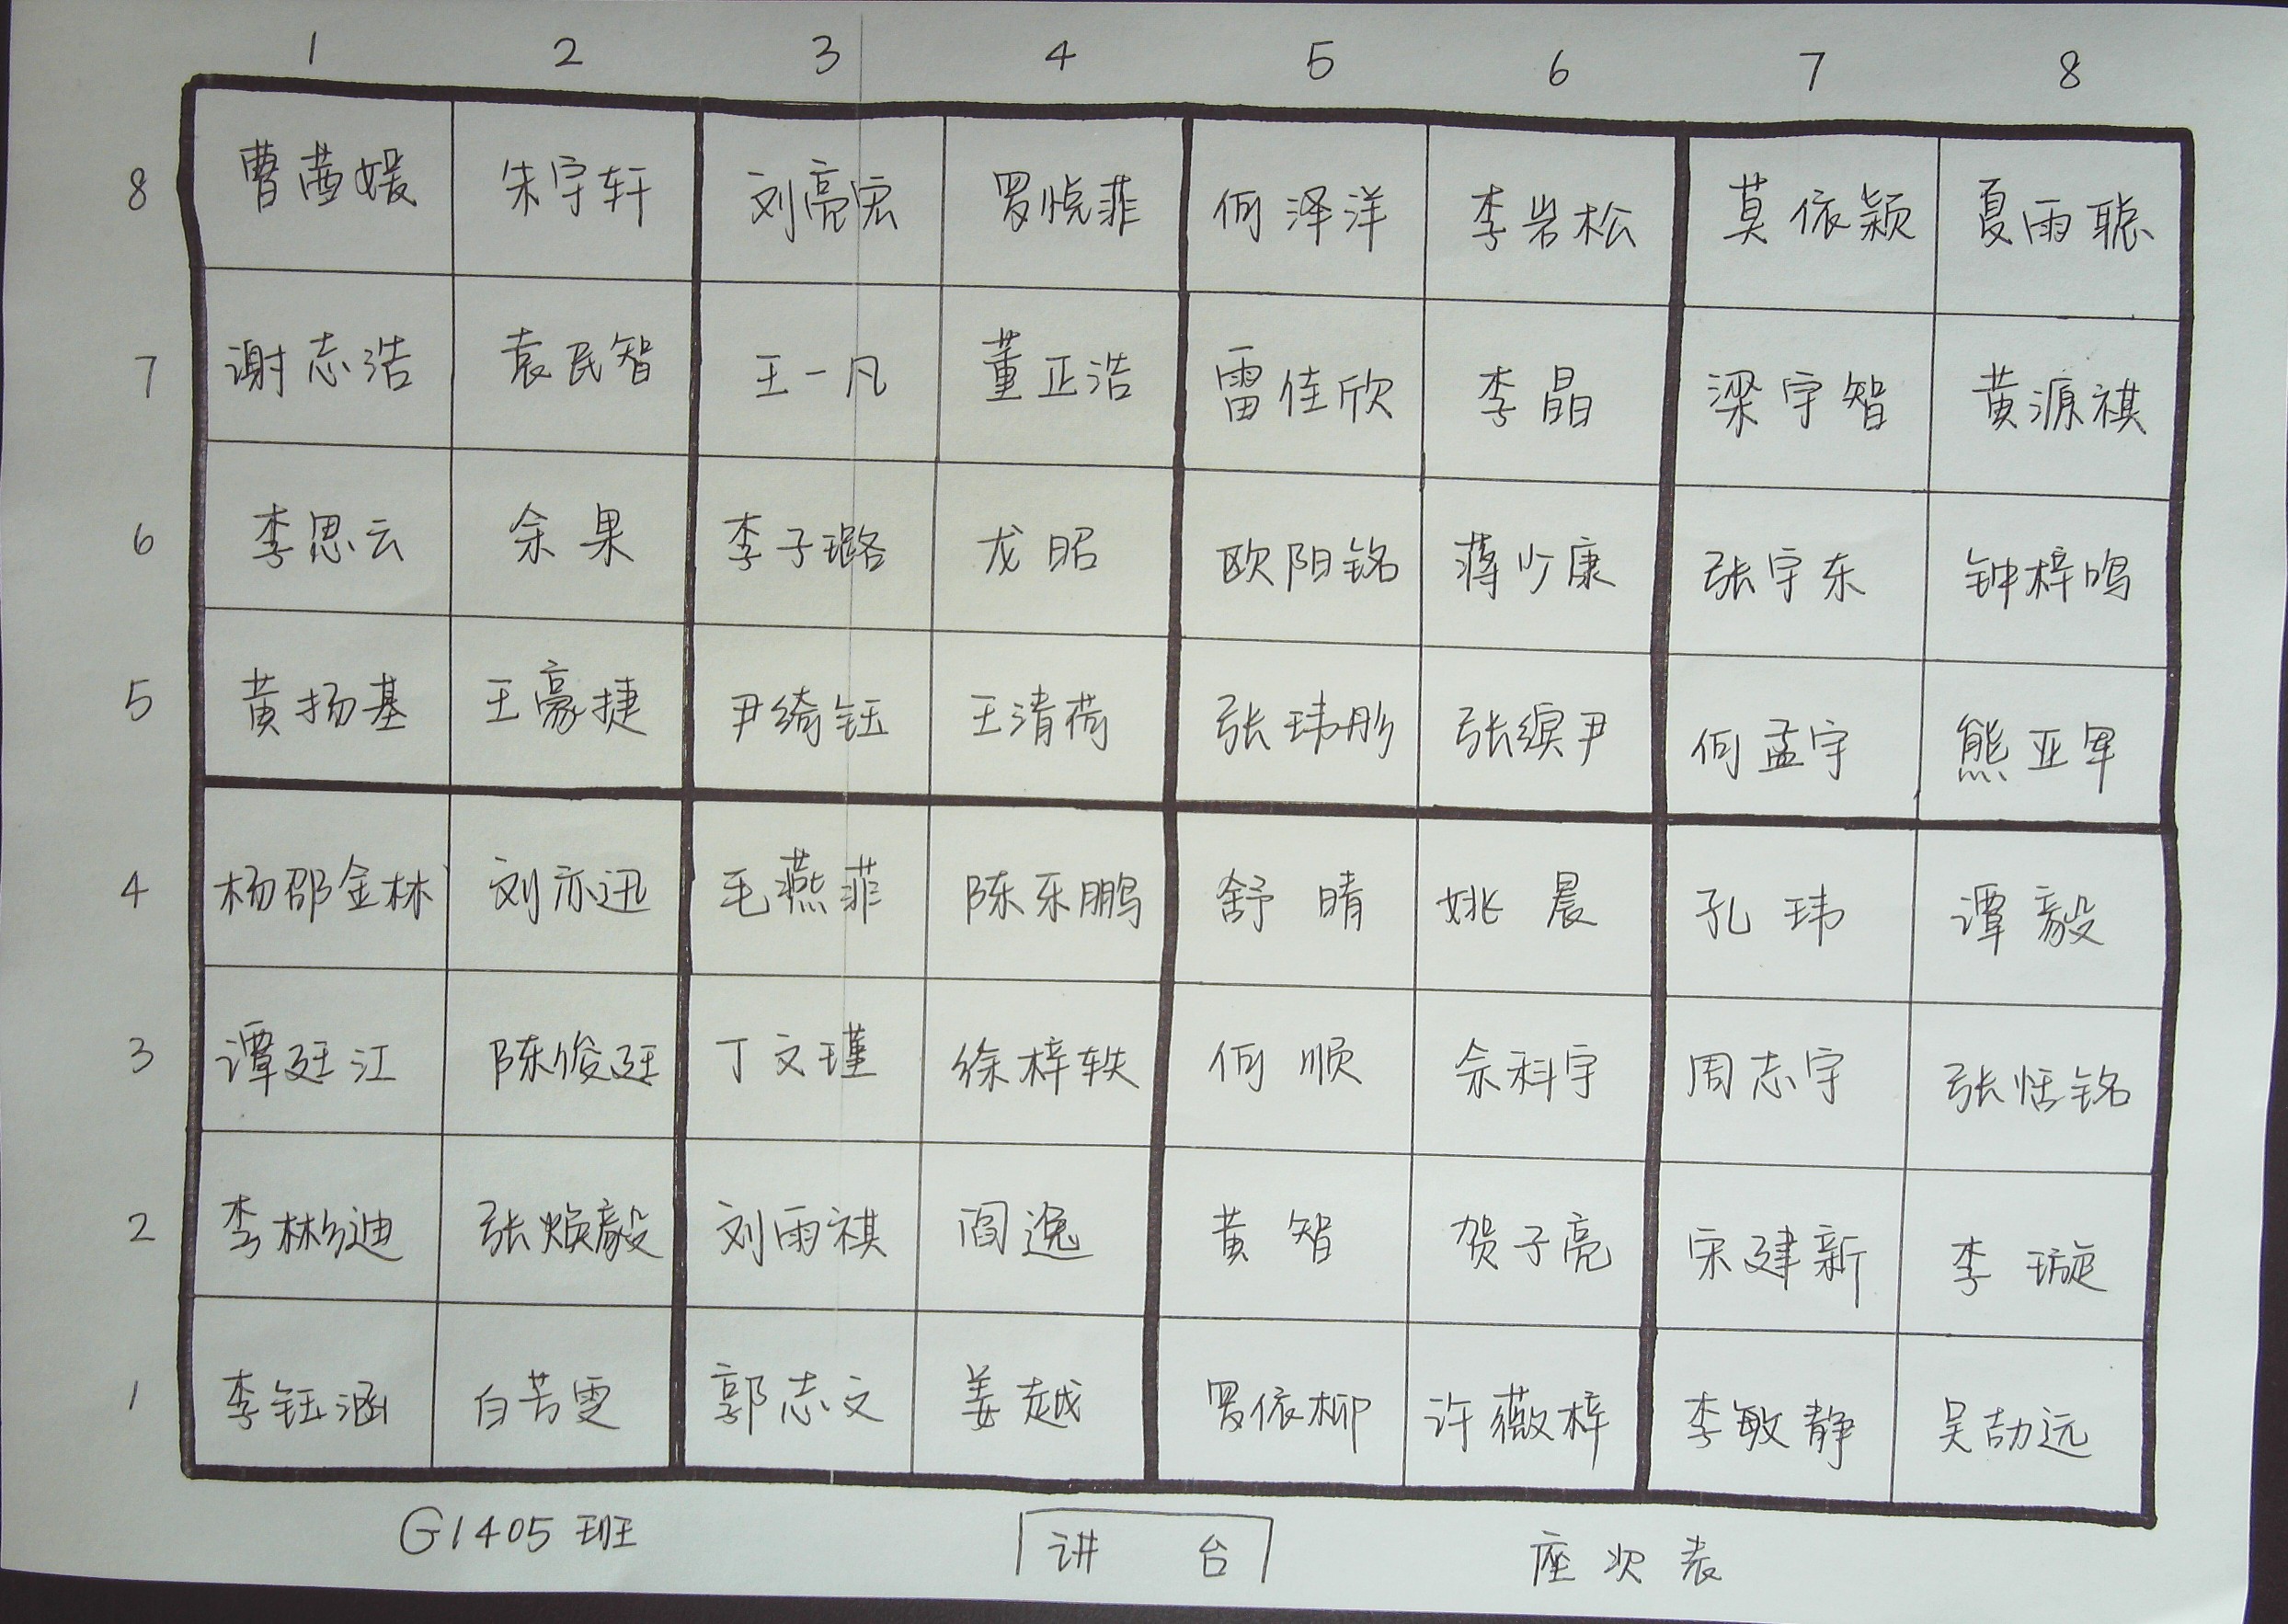 1 2 3 4 5 6 7 8
8 曹茜媛 朱宇轩 刘亮宏 罗悦菲 何泽洋 李岩松 莫依颖 夏雨聪
7 谢志浩 袁民智 王一凡 董正浩 雷佳欣 李晶 梁宇智 黄源祺
6 李思云 余果 李子璐 龙昭 欧阳铭 蒋少康 张宇东 钟梓鸣
5 黄扬基 王豪捷 尹绮钰 王清荷 张玮彤 张缤尹 何孟宇 熊亚军
4 杨邵金林 刘亦迅 毛燕菲 陈乐鹏 舒晴 姚晨 孔玮 谭毅
3 谭廷江 陈俊廷 丁文瑾 徐梓轶 何顺 佘科宇 周志宇 张恬铭
2 李彬迪 张焕毅 刘雨祺 阎逸 黄智 贺子亮 宋建新 李璇
1 李钰涵 白芳雯 郭志文 姜越 罗依柳 许薇梓 李敏静 吴劼远
G1405班 讲台 座次表